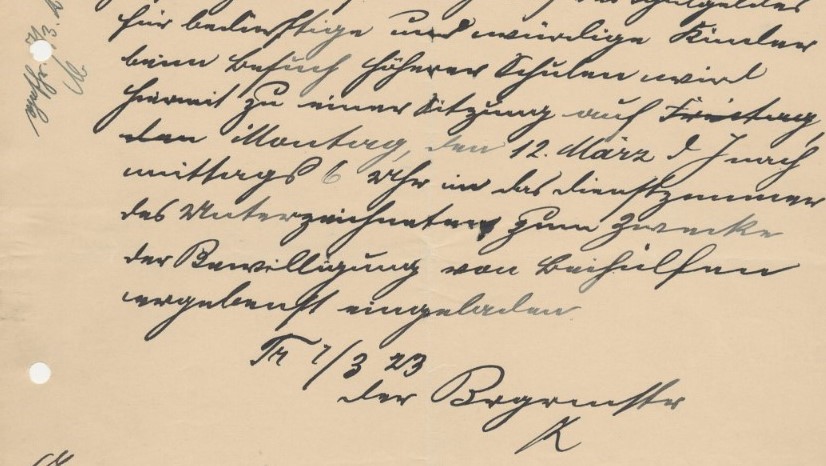 Schulgeldes
für bedürftige und würdige Kinder
beim Besuch höherer Schulen wird
hiermit zu einer Sitzung auf Freitag,
den Montag, den 12. März d J nach
mittags 6 Uhr in das Dienstzimmer
des Unterzeichneten zum Zwecke
der Bewilligung von Beihülfen
ergebenst eingeladen.
Tr 7/3 23
der Brgrmstr
K